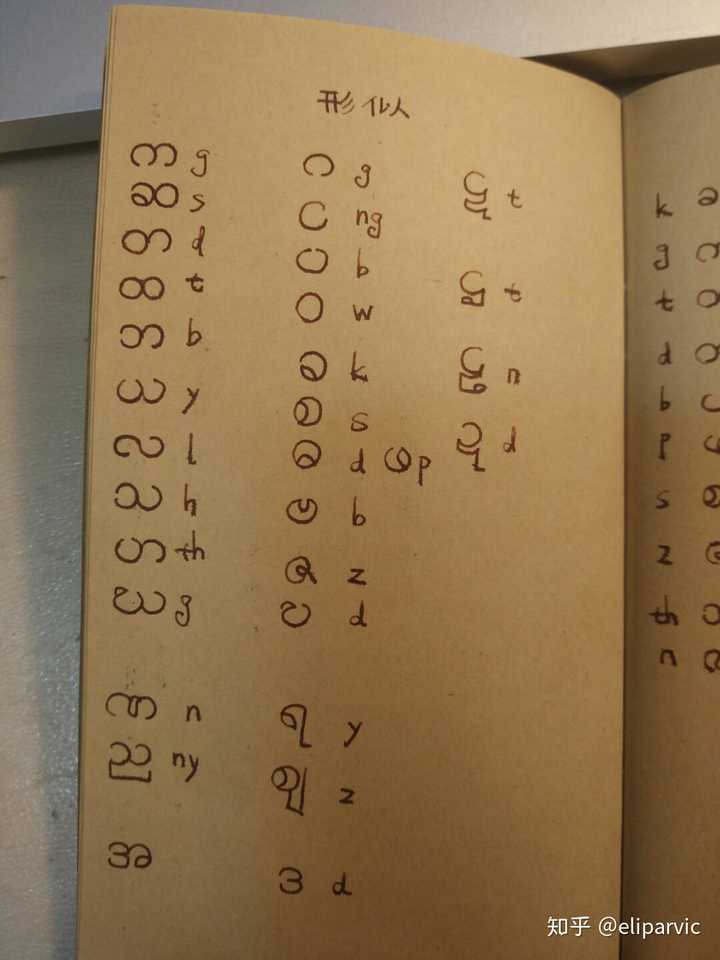 形似
က g
ဆ s
တ d
ထ t
ဘ b
ယ y
လ l
ဟ h
သ th
ဃ g
ဏ n
ည ny
အ
ဂ g
င ng
ပ b
ဝ w
ခ k
စ s
ဓ d ဖ p
ဗ b
ဇ z
ဎ d
ရ y
ဈ z
ဒ d
ဋ t
ဌ t
n
ဍ d
k ခ
g
t
d
b
p
s
z
th
n
知乎 @eliparvic